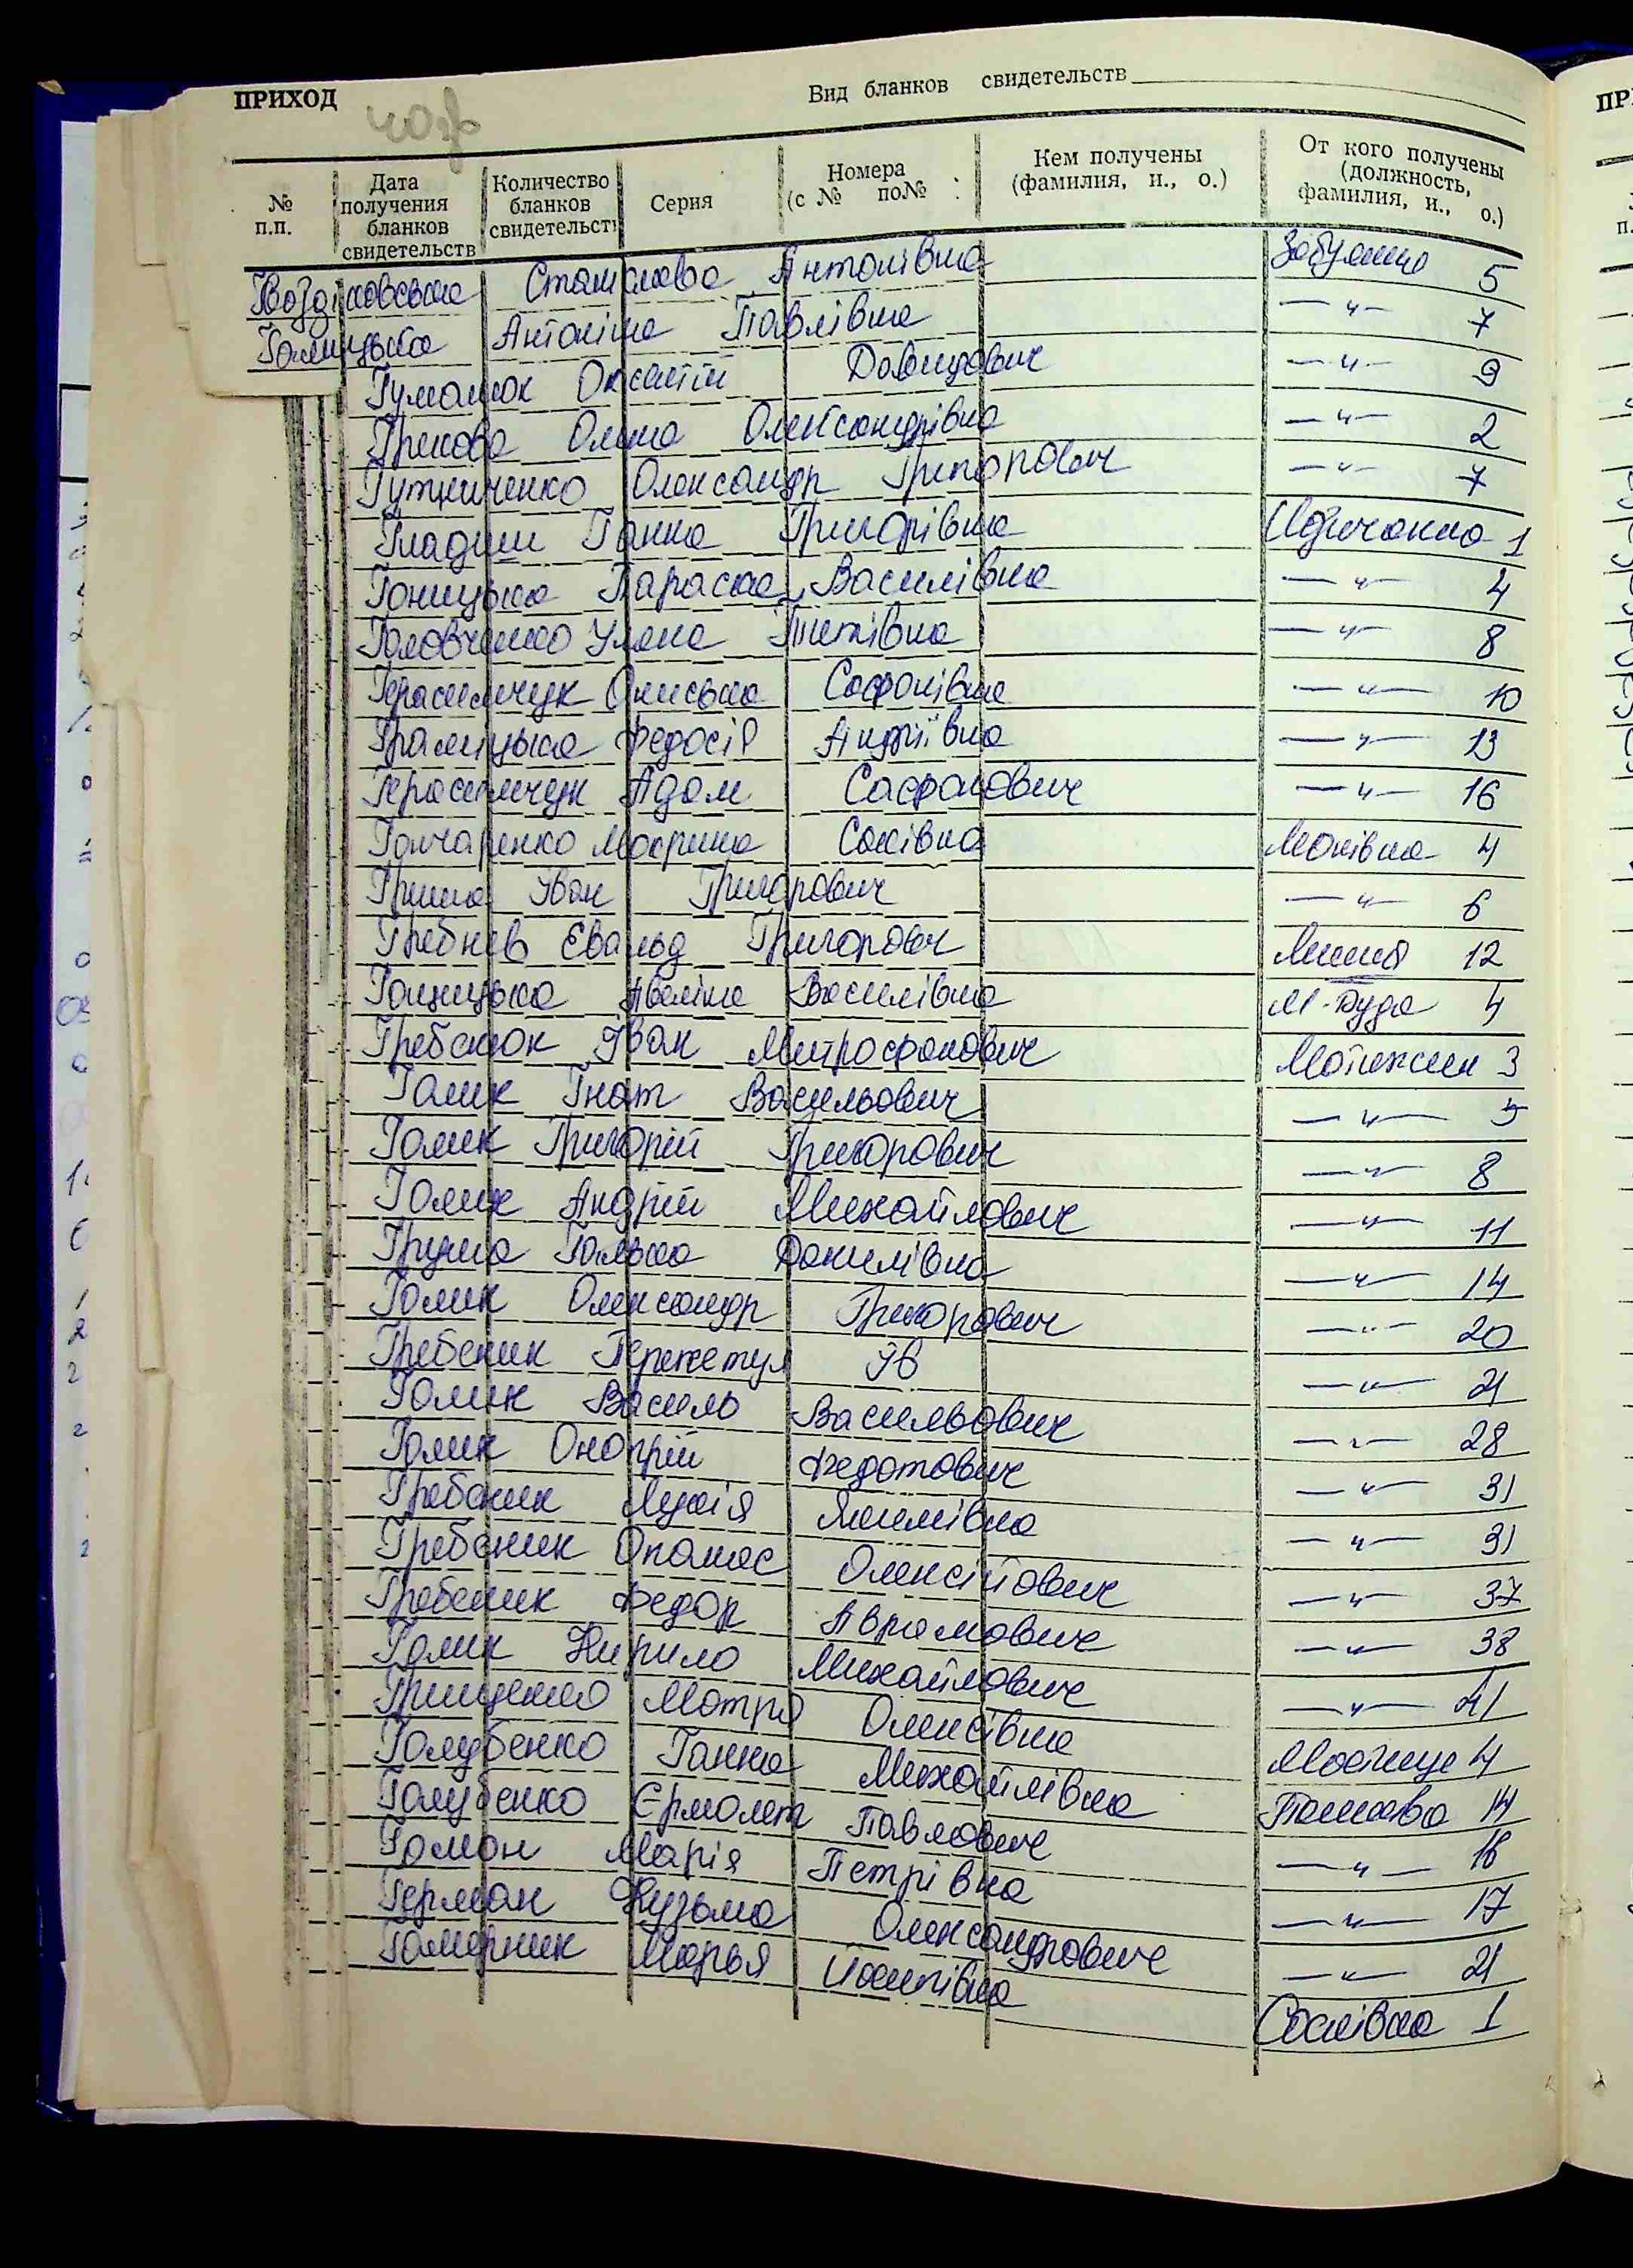 ПРИХОД Вид бланков свидетельств
№ п.п. Дата получения бланков свидетельств Количество бланков свидетельств Серия Номера (с № по№ Кем получены (фамилия, и., о.) От кого получены (должность, фамилия, и., о.)
Станіслава Антонівна 5
Галицька Антоніна Павлівна —"— 7
Гуманюк Оксентій Давидович —"— 9
Грекова Олена Олександрівна —"— 2
Гутниченко Олександр Григорович —"— 7
Гладиш Ганна Григорівна 1
Гоницька Параска Василівна —"— 4
Головченко Уляна Титівна —"— 8
Герасимчук Олиська Сафонівна —"— 10
Грамицька Федосія Андріївна —"— 13
Герасимчук Адам Сафонович —"— 16
Гончаренко Мокрина Савівна 4
Гриша Іван Григорович —"— 6
Гребнєв Євальд Григорович 12
Василівна М-Буда 4
Гребенюк Іван Митрофанович Мотижин 3
Голик Гнат Васильович —"— 5
Голик Григорій Григорович —"— 8
Голик Андрій Михайлович —"— 11
Груша Галька Данилівна —"— 14
Голик Олександр Григорович —"— 20
Гребеник Ів —"— 21
Голик Василь Васильович —"— 28
Голик Онопрій Федотович —"— 31
Гребеник Лукія Якимівна —"— 31
Гребеник Опанас Олексійович —"— 37
Гребеник Федор Аврамович —"— 38
Голик Кирило Михайлович —"— 41
Грищенко Мотря Олексівна 4
Голубенко Ганна Михайлівна 14
Голубенко Єрмолай Павлович —"— 16
Гомон Марія Петрівна —"— 17
Герман Кузьма Олександрович —"— 21
Гамерник Марья Йосипівна 1